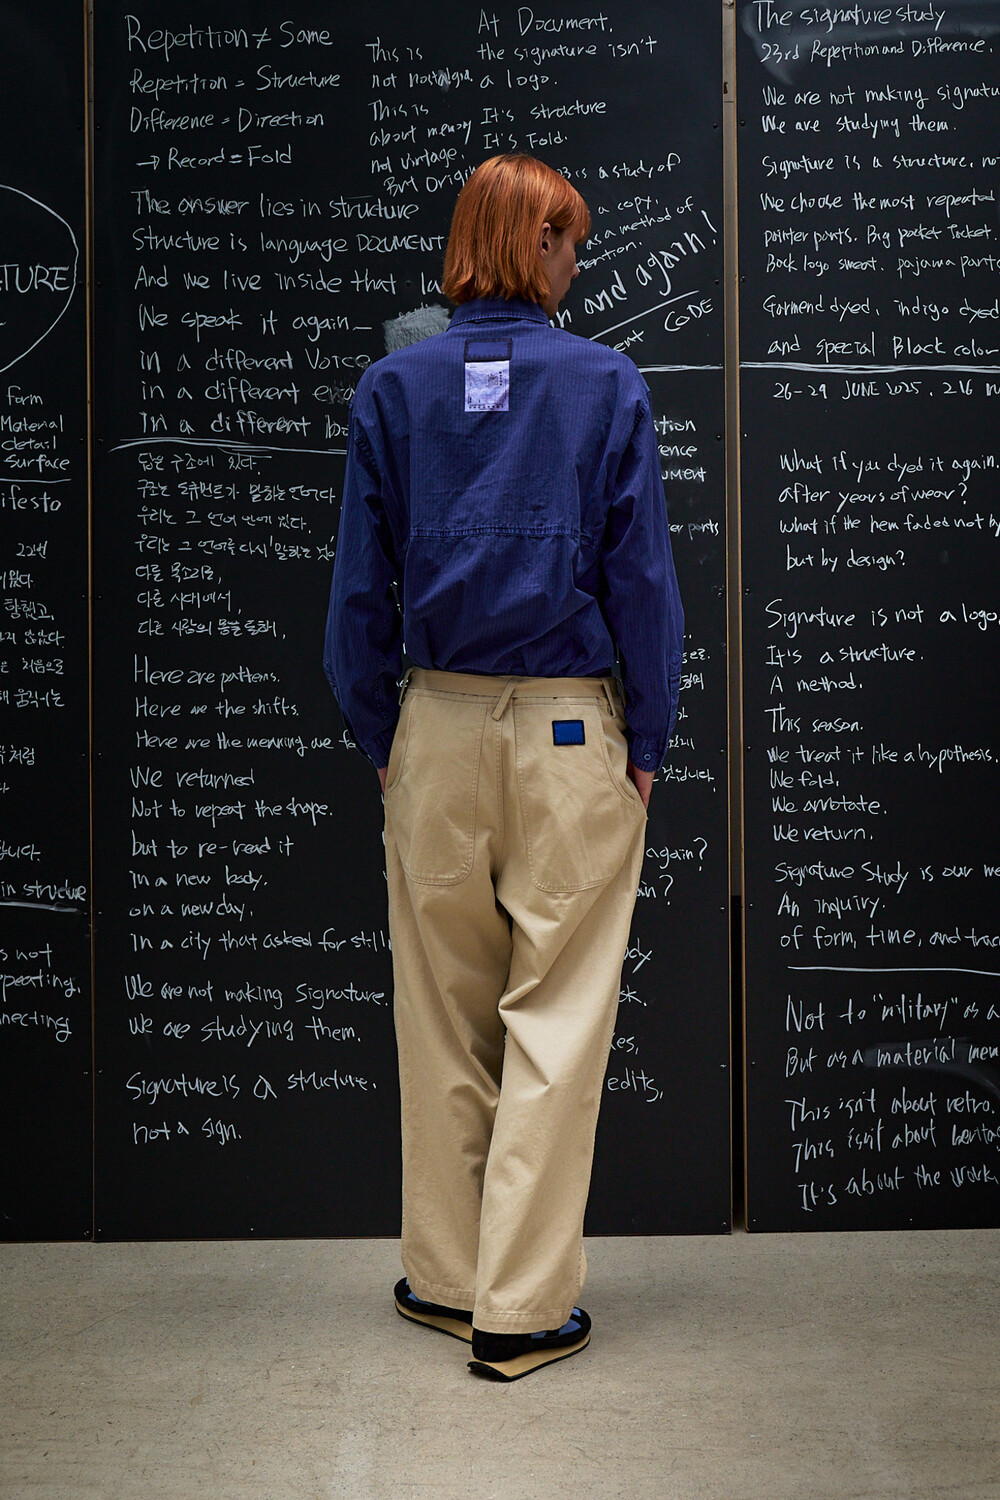 TURE
form
Material
detail
Surface
ifesto
in structure
s not
peating.
nnecting
Repetition ≠ Same
Repetition = Structure
Difference = Direction
→ Record = Fold
The answer lies in structure
Structure is language DOCUMENT
And we live inside that la
We speak it again—
in a different Voice
in a different
In a different
답은 구조에 있다.
구조는 도큐먼트가 말하는 언어다
우리는 그 언어 안에 있다.
우리는 그 언어를 다시 '말하는 것'
다른 목소리로,
다른 시대에서,
다른 사람의 몸을 통해,
Here are patterns.
Here are the shifts.
Here are the meaning we fo
We returned
Not to repeat the shape.
but to re-read it
in a new body.
on a new day.
in a city that asked for still
We are not making Signature.
We are studying them.
Signature is a structure.
not a sign.
This is
not nostalgia.
This is
about memory
not vintage.
But Origin
At Document,
the signature isn't
a logo.
It's structure
It's Fold.
is a study of
a copy,
as a method of
and again!
CODE
again?
edits,
The signature study
23rd Repetition and Difference.
We are not making signatu
We are studying them.
Signature is a structure, no
We choose the most repeated
painter pants. Big pocket Jacket.
Back logo sweat. pajama pants
Garment dyed, indigo dyed
and special Black color
26-29 JUNE 2025, 216
What if you dyed it again.
after years of wear?
what if the hem faded not by
but by design?
Signature is not a logo.
It's a structure.
A method.
This season.
We treat it like a hypothesis.
We fold.
We annotate.
We return.
Signature Study is our me
An inquiry.
of form, time, and trac
Not to "military" as a
But as a material mem
This isn't about retro.
This isn't about herita
It's about the work